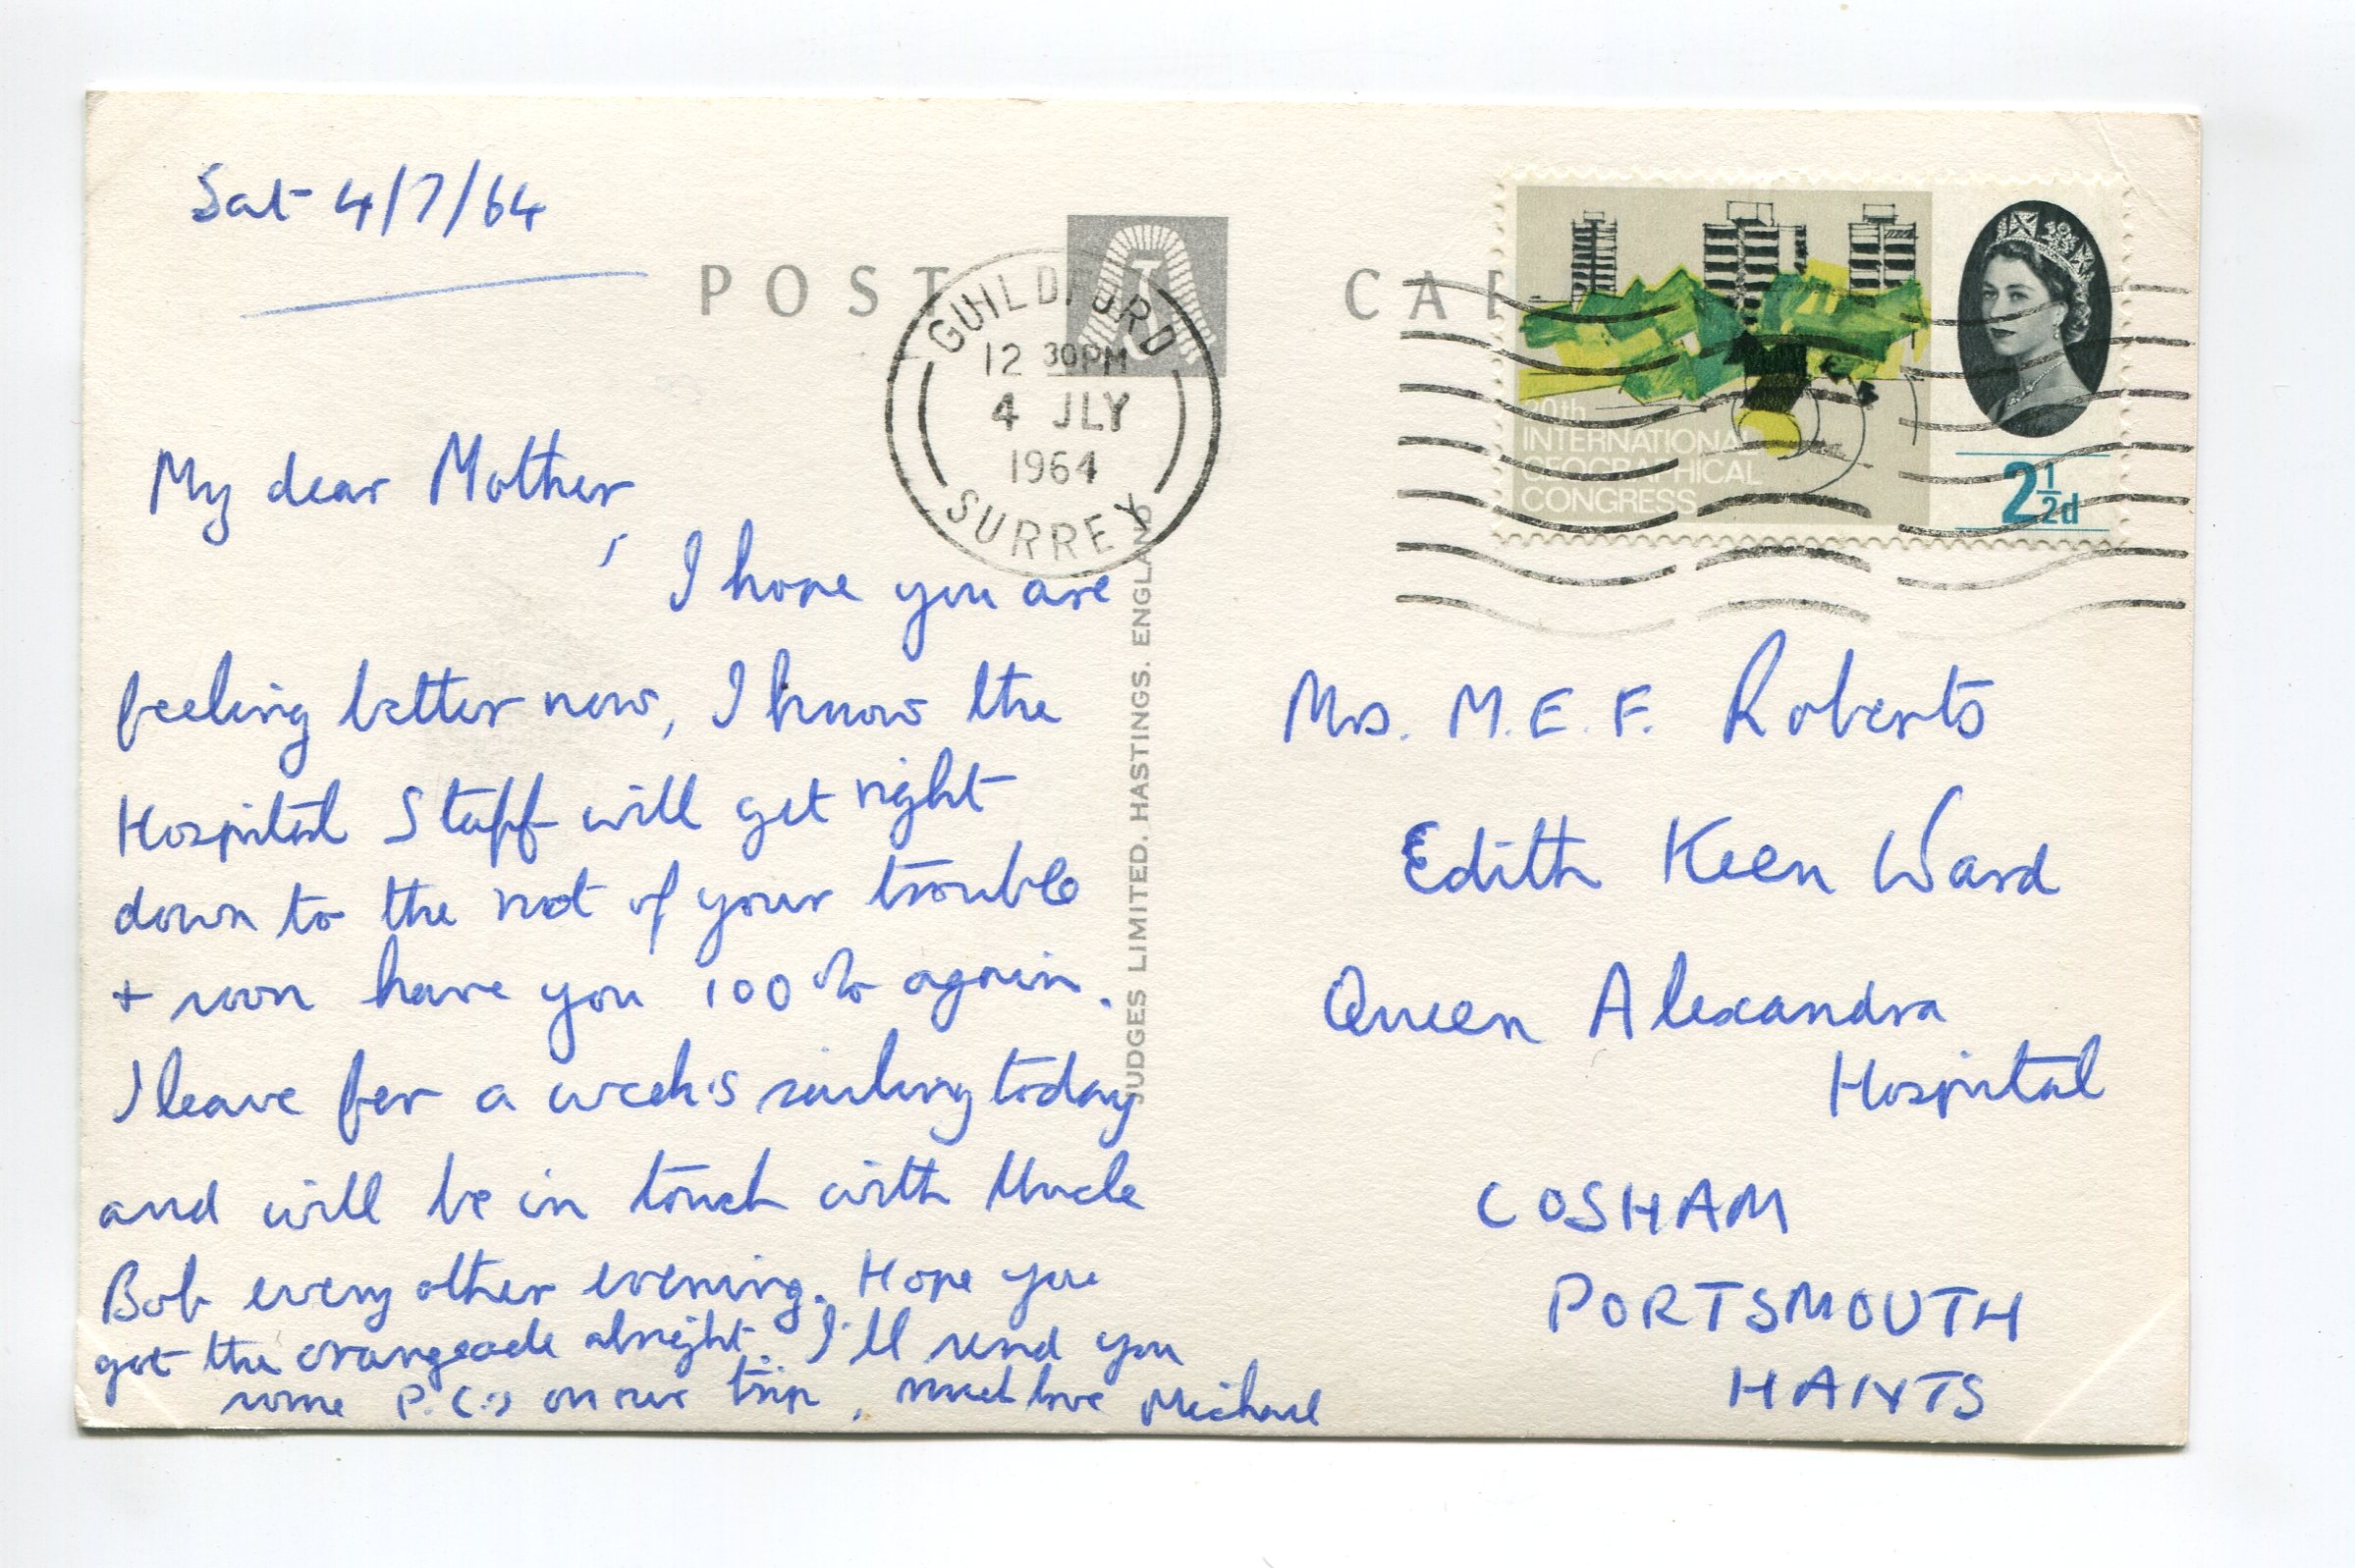 Sat 4/7/64
POST CAR
GUILDFORD
12 30PM
4 JLY
1964
SURREY
20th
INTERNATIONAL
GEOGRAPHICAL
CONGRESS
2½d
My dear Mother,
I hope you are
feeling better now, I know the
Hospital Staff will get right
down to the root of your trouble
+ soon have you 100% again.
I leave for a week's sailing today
and will be in touch with Uncle
Bob every other evening. Hope you
got the orangeade alright. I'll send you
some P.C.s on our trip, much love Michael
JUDGES LIMITED. HASTINGS. ENGLAND
Mrs. M. E. F. Roberts
Edith Keen Ward
Queen Alexandra
Hospital
COSHAM
PORTSMOUTH
HANTS